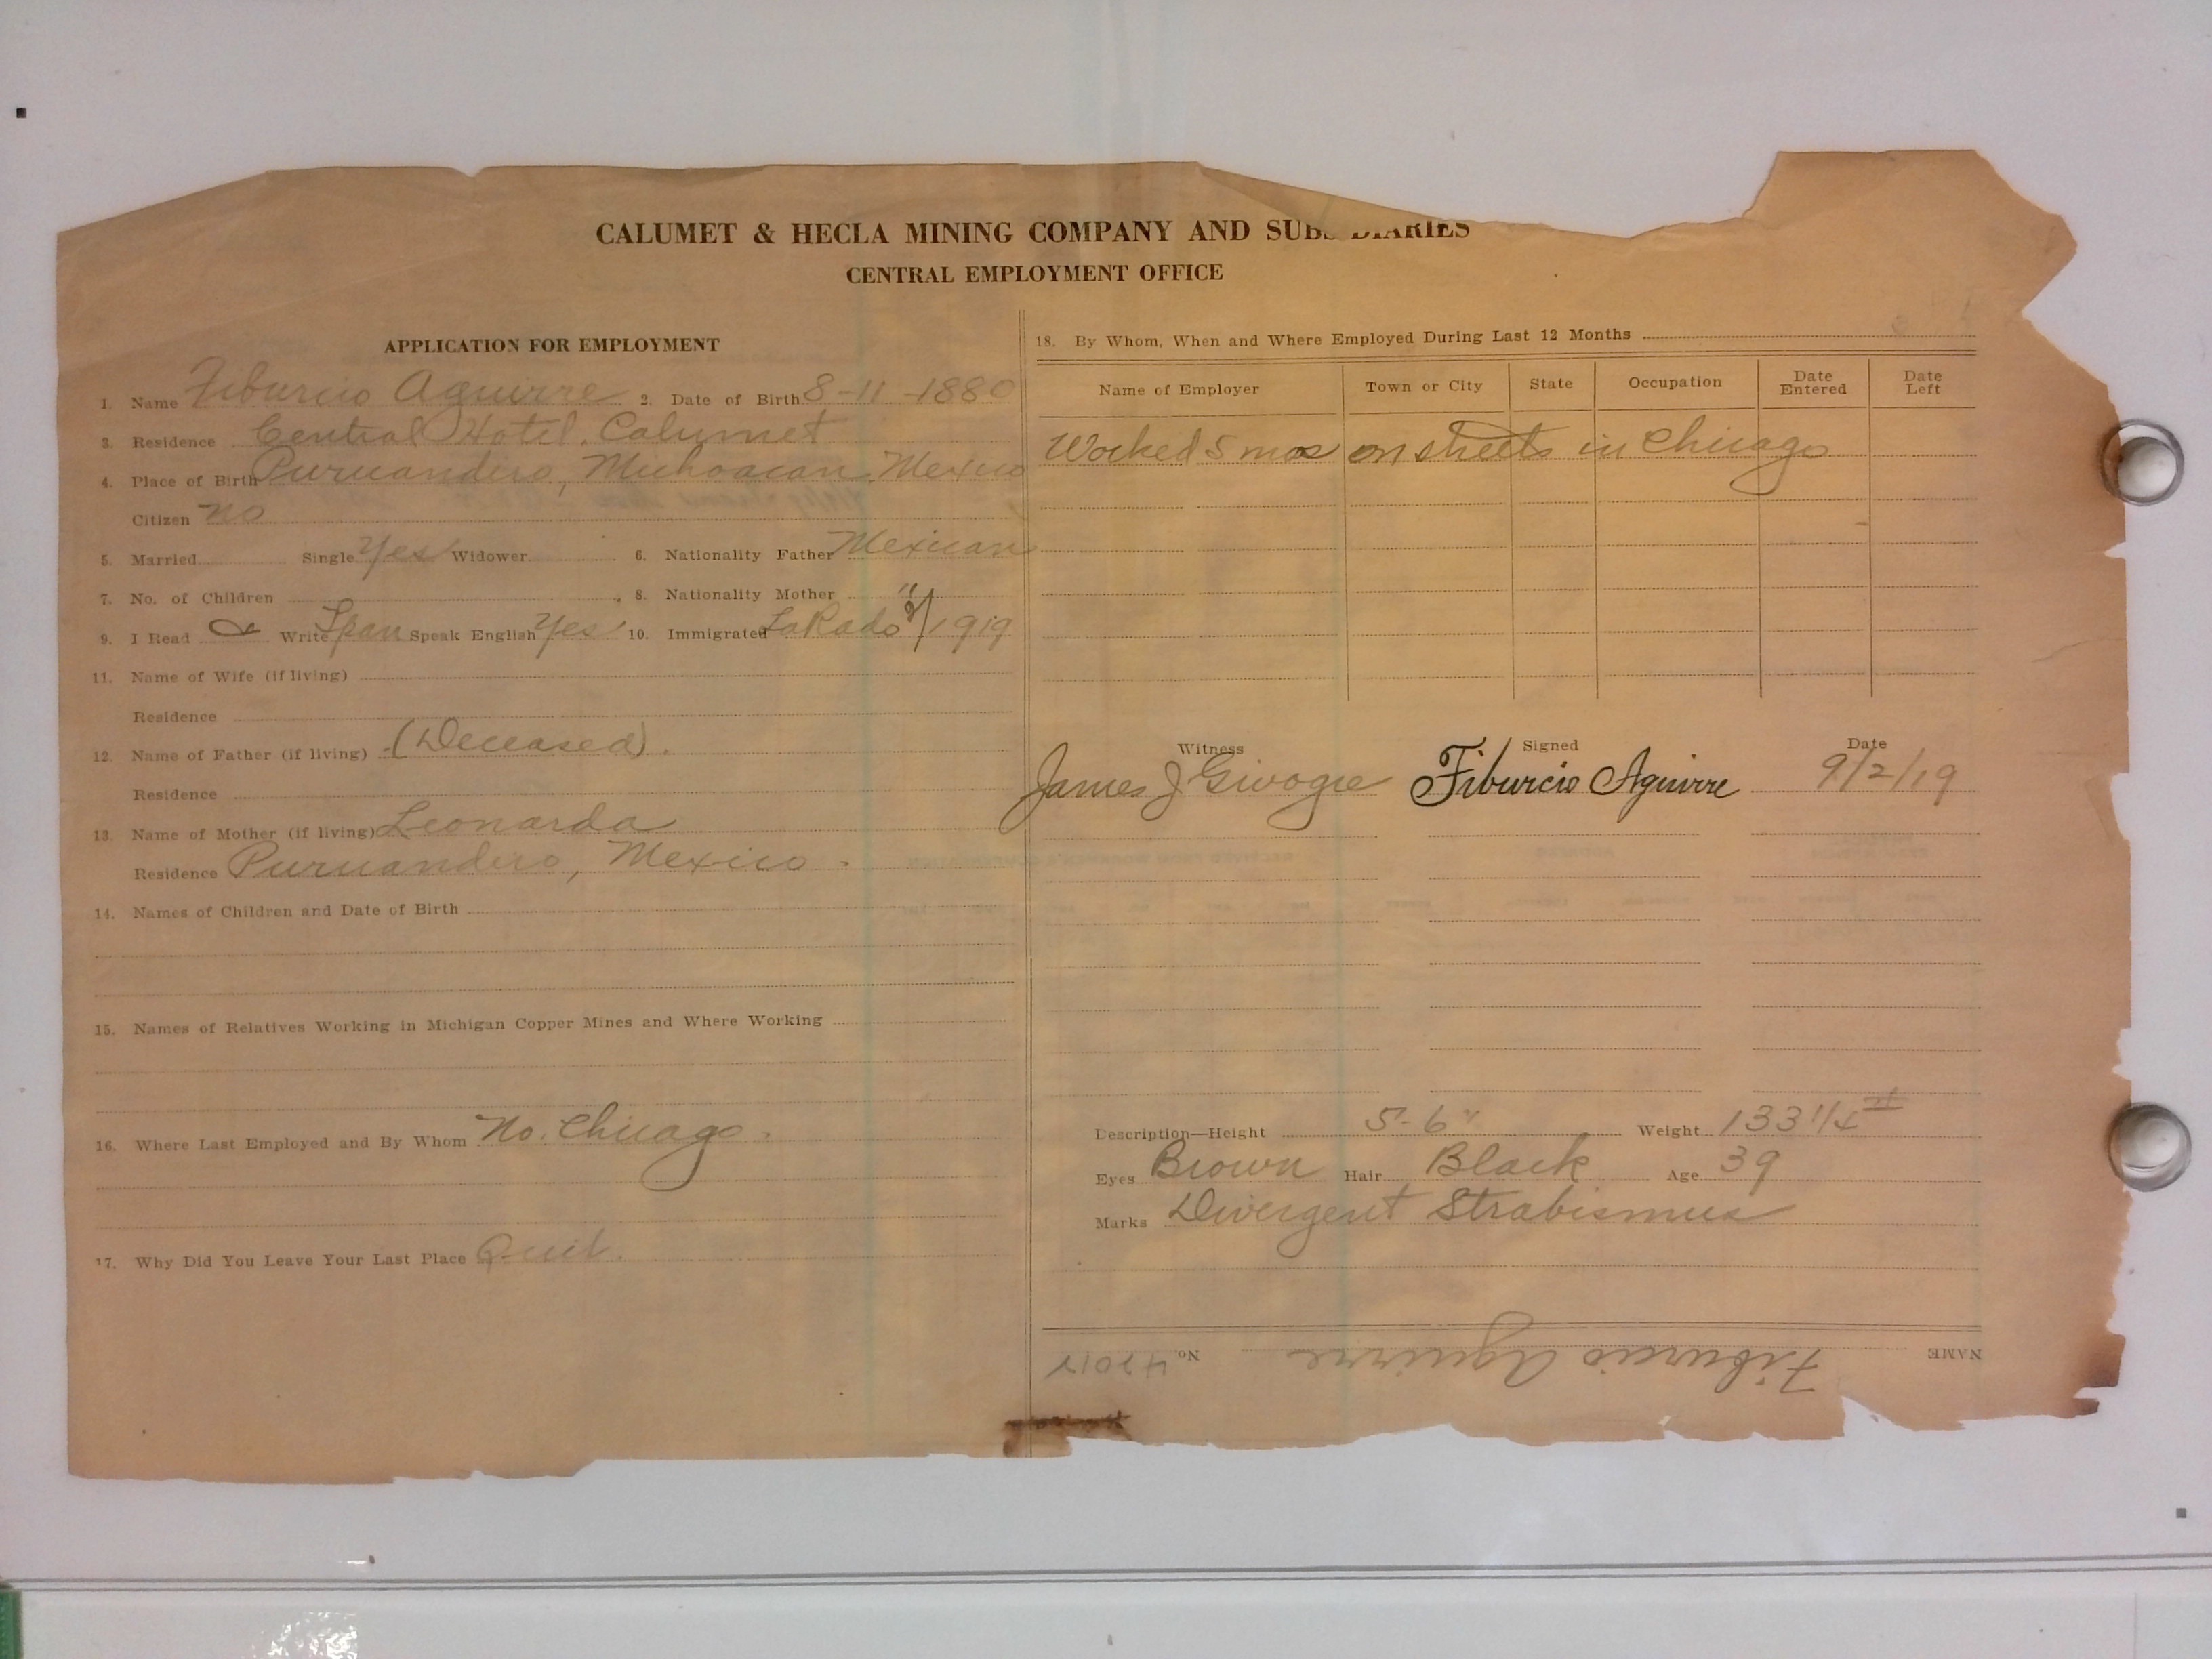 CALUMET & HECLA MINING COMPANY AND SUBSIDIARIES
CENTRAL EMPLOYMENT OFFICE
APPLICATION FOR EMPLOYMENT
1. Name Tiburcio Aguirre 2. Date of Birth 8-11-1880
3. Residence Central Hotel, Calumet
4. Place of Birth Puruandiro, Michoacan Mexico
Citizen No
5. Married Single Yes Widower 6. Nationality Father Mexican
7. No. of Children 8. Nationality Mother "
9. I Read & Write Span Speak English Yes 10. Immigrated LaRado /1919
11. Name of Wife (if living)
Residence
12. Name of Father (if living) (Deceased).
Residence
13. Name of Mother (if living) Leonarda
Residence Puruandiro, Mexico.
14. Names of Children and Date of Birth
15. Names of Relatives Working in Michigan Copper Mines and Where Working
16. Where Last Employed and By Whom No. Chicago.
17. Why Did You Leave Your Last Place Quit.
18. By Whom, When and Where Employed During Last 12 Months
Name of Employer Town or City State Occupation Date Entered Date Left
Worked 5 mos on streets in Chicago
Witness Signed Date
James J Tiburcio Aguirre 9/2/19
Description—Height 5-6" Weight 133 1/4
Eyes Brown Hair Black Age 39
Marks Divergent Strabismus
NAME Tiburcio Aguirre No.